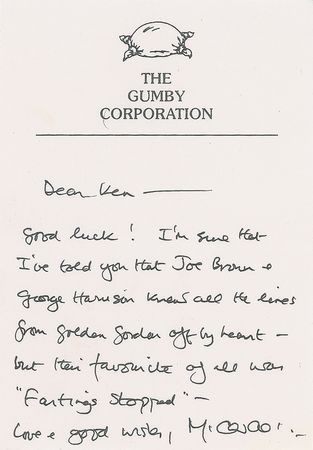 THE
GUMBY
CORPORATION
Dear Ken —
Good luck! I'm sure that
I've told you that Joe Brown &
George Harrison knew all the lines
from Golden Gordon off by heart —
but their favourite of all was
"Fartings Stopped" —
Love & good wishes, Michael